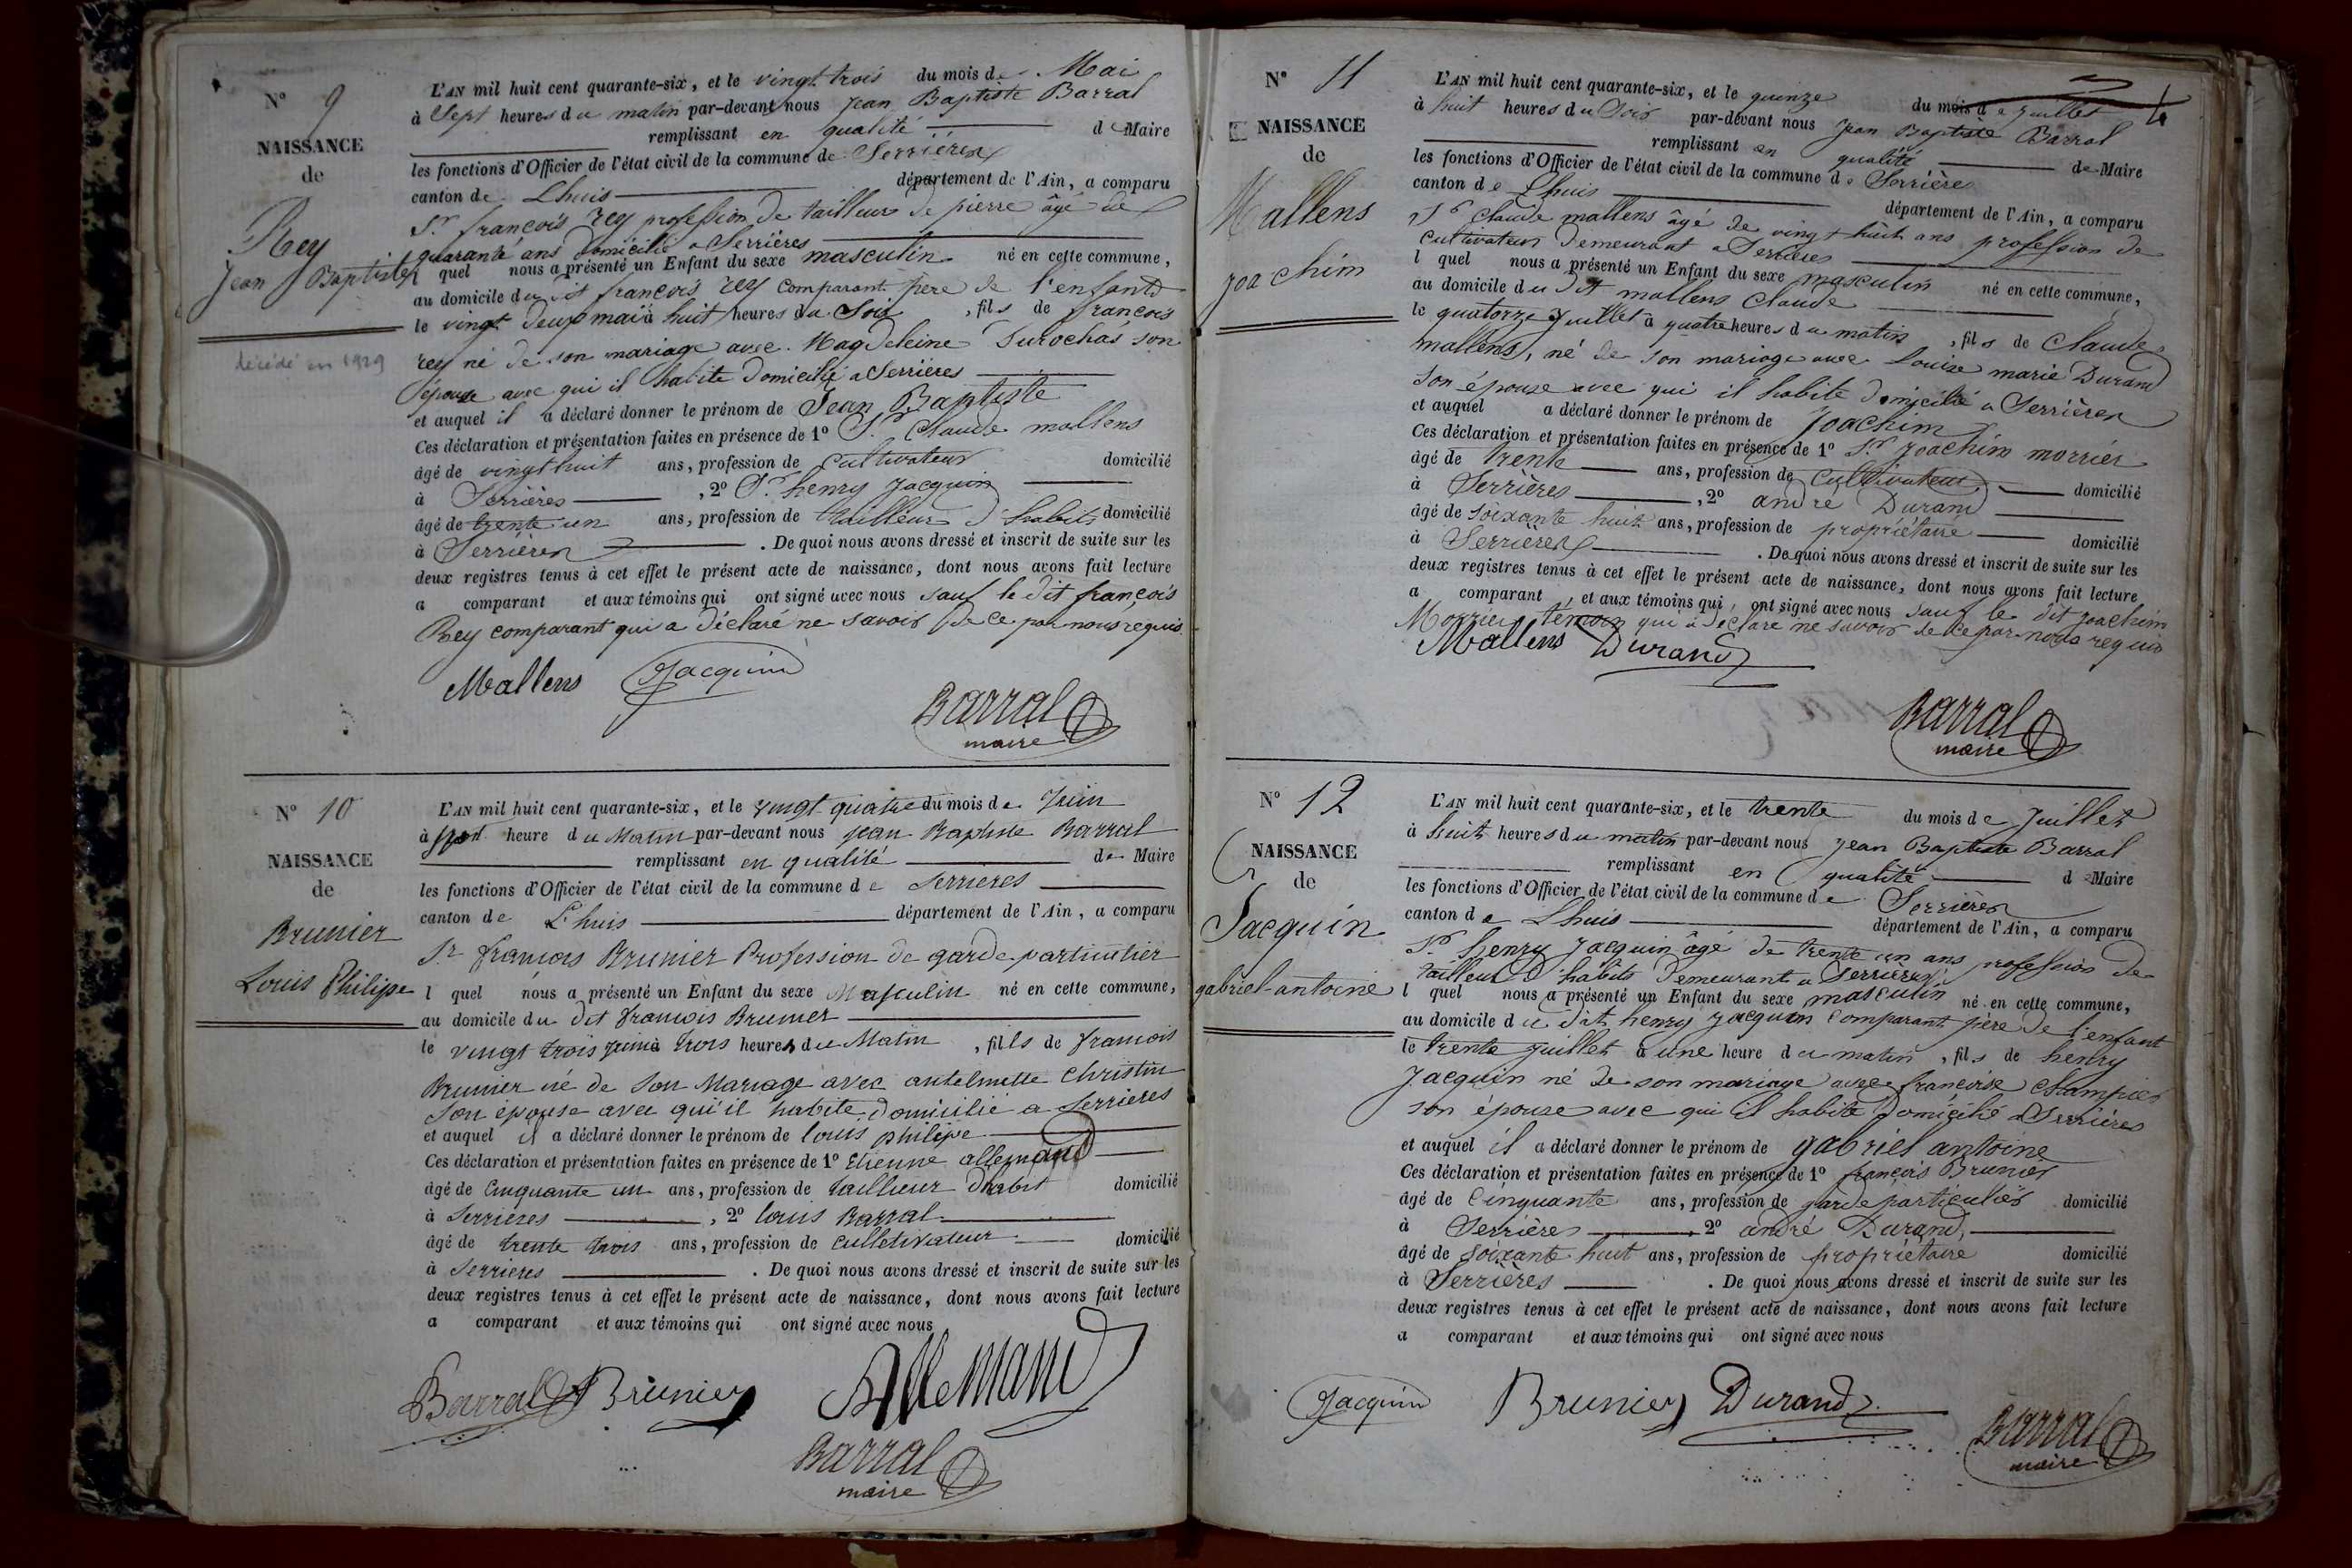 N° 9
NAISSANCE
de
Rey
Jean Baptiste
décédé en 1929
L'AN mil huit cent quarante-six, et le vingt trois du mois de Mai
à Sept heures du matin par-devant nous Jean Baptiste Barral
remplissant en qualité de Maire
les fonctions d'Officier de l'état civil de la commune de Serrières
canton de Lhuis département de l'Ain, a comparu
Sr. françois rey profession de tailleur de pierre âgé de
quarante ans domicilié a Serrières
l quel nous a présenté un Enfant du sexe masculin né en cette commune,
au domicile du dit françois rey comparant père de l'enfant
le vingt deux mai à huit heures du Soir, fils de françois
rey né de son mariage avec Magdeleine Surochas son
épouse avec qui il habite domicilié a Serrières
et auquel il a déclaré donner le prénom de Jean Baptiste
Ces déclaration et présentation faites en présence de 1° Sr. Claude mallens
âgé de vingt huit ans, profession de Cultivateur domicilié
à Serrières, 2° Sr. henry Jacquin
âgé de trente un ans, profession de tailleur d'habits domicilié
à Serrières. De quoi nous avons dressé et inscrit de suite sur les
deux registres tenus à cet effet le présent acte de naissance, dont nous avons fait lecture
a comparant et aux témoins qui ont signé avec nous sauf le dit françois
Rey comparant qui a déclaré ne savoir de ce par nous requis
Mallens Jacquin
Barral
maire
N° 10
NAISSANCE
de
Brunier
Louis Philipe
L'AN mil huit cent quarante-six, et le vingt quatre du mois de Juin
à heure du Matin par-devant nous Jean Baptiste Barral
remplissant en qualité de Maire
les fonctions d'Officier de l'état civil de la commune de Serrieres
canton de L'huis département de l'Ain, a comparu
Sr francois Brunier Profession de garde particulier
l quel nous a présenté un Enfant du sexe Masculin né en cette commune,
au domicile du dit francois Brunier
le vingt trois juin à trois heures du Matin, fils de francois
Brunier né de Son Mariage avec antelmette Christin
Son épouse avec qu'il habite domicilié a Serrieres
et auquel il a déclaré donner le prénom de louis philipe
Ces déclaration et présentation faites en présence de 1° Etienne allemand
âgé de Cinquante un ans, profession de tailleur dhabit domicilié
à Serrieres, 2° louis Barral
âgé de trente trois ans, profession de culletivateur domicilié
à Serrieres. De quoi nous avons dressé et inscrit de suite sur les
deux registres tenus à cet effet le présent acte de naissance, dont nous avons fait lecture
a comparant et aux témoins qui ont signé avec nous
Barral Brunier Allemand
Barral
maire
4
N° 11
NAISSANCE
de
Mallens
joachim
L'AN mil huit cent quarante-six, et le quinze du mois de juillet
à huit heures du Soir par-devant nous Jean Baptiste Barral
remplissant en qualité de Maire
les fonctions d'Officier de l'état civil de la commune de Serrières
canton de Lhuis département de l'Ain, a comparu
Sr Claude mallens âgé de vingt huit ans profession de
Cultivateur demeurant a Serrières
l quel nous a présenté un Enfant du sexe masculin né en cette commune,
au domicile du dit mallens Claude
le quatorze Juillet à quatre heures du matin, fils de Claude
mallens, né de son mariage avec Louise marie Durand
Son épouse avec qui il habite domicilié a Serrières
et auquel a déclaré donner le prénom de Joachim
Ces déclaration et présentation faites en présence de 1° Sr. Joachim morrier
âgé de trente ans, profession de Cultivateur domicilié
à Serrières, 2° andré Durand
âgé de soixante huit ans, profession de propriétaire domicilié
à Serrières. De quoi nous avons dressé et inscrit de suite sur les
deux registres tenus à cet effet le présent acte de naissance, dont nous avons fait lecture
a comparant, et aux témoins qui, ont signé avec nous sauf le dit joachim
Morrier témoin qui a déclaré ne savoir de ce par nous requis
Mallens Durand
Barral
maire
N° 12
NAISSANCE
de
Jacquin
gabriel-antoine
L'AN mil huit cent quarante-six, et le trente du mois de Juillet
à huit heures du matin par-devant nous Jean Baptiste Barral
remplissant en qualité d Maire
les fonctions d'Officier de l'état civil de la commune de Serrières
canton de Lhuis département de l'Ain, a comparu
Sr. henry Jacquin âgé de trente un ans profession de
tailleur d'habits demeurant a Serrières
l quel nous a présenté un Enfant du sexe masculin né en cette commune,
au domicile du dit henry Jacquin Comparant père de l'enfant
le trente juillet à une heure du matin, fils de henry
Jacquin né de son mariage avec françoise Champier
son épouse avec qui il habite domicilié a Serrières
et auquel il a déclaré donner le prénom de gabriel antoine
Ces déclaration et présentation faites en présence de 1° françois Brunier
âgé de Cinquante ans, profession de garde particulier domicilié
à Serrières 2° andré Durand,
âgé de soixante huit ans, profession de propriétaire domicilié
à Serrières. De quoi nous avons dressé et inscrit de suite sur les
deux registres tenus à cet effet le présent acte de naissance, dont nous avons fait lecture
a comparant et aux témoins qui ont signé avec nous
Jacquin Brunier Durand
Barral
maire